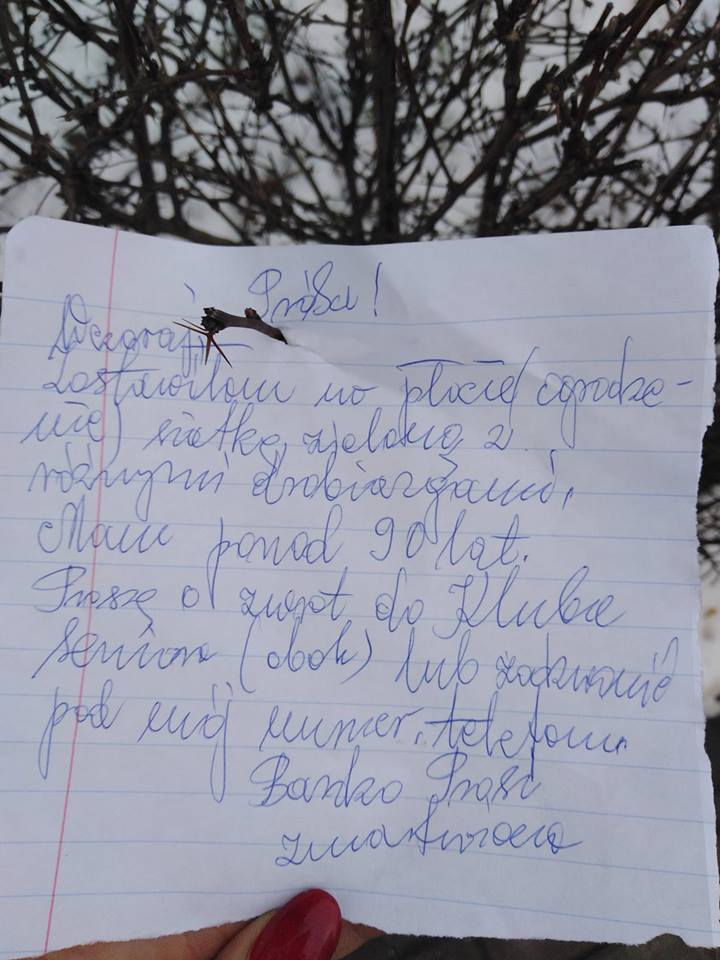 Prośba!
Wczoraj
zostawiłam na płocie (ogrodze-
nie) siatkę zieloną z
różnymi drobiazgami.
Mam ponad 90 lat.
Proszę o zwrot do Klubu
Seniora (obok) lub zadzwonić
pod mój numer telefonu
Bardzo Prosi
zmartwiona